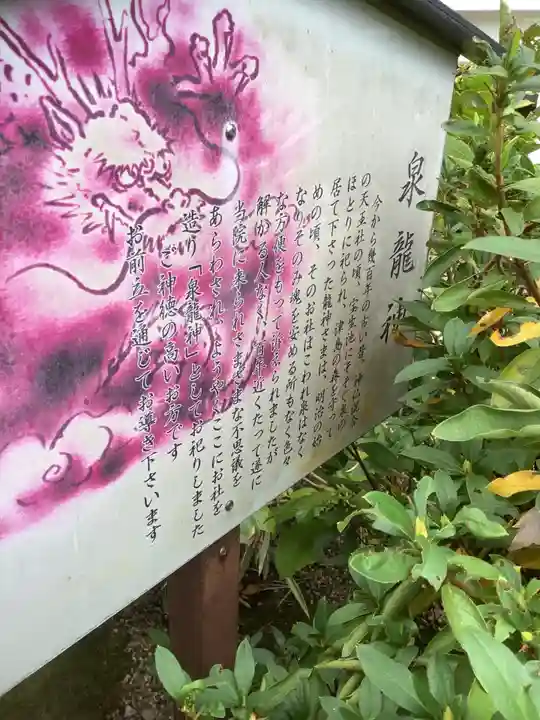 泉龍神
今から幾百年の古い昔、神仏混合
の天王社の頃、宝生池にそそぐ泉の
ほとりに祀られ、津島の森を守って
居て下さった龍神さまは、明治の始
めの頃、そのお社はこわれ泉はなく
なりそのみ魂を安める所もなく色々
な方便をもって
解かる人なく、百年近くたって遂に
当院に来られさまざまな不思議を
あらわされ、ようやくここにお社を
造り「泉龍神」としてお祀りしました
ぞ 神徳の高いお方です
お前立を通じてお導き下さいます